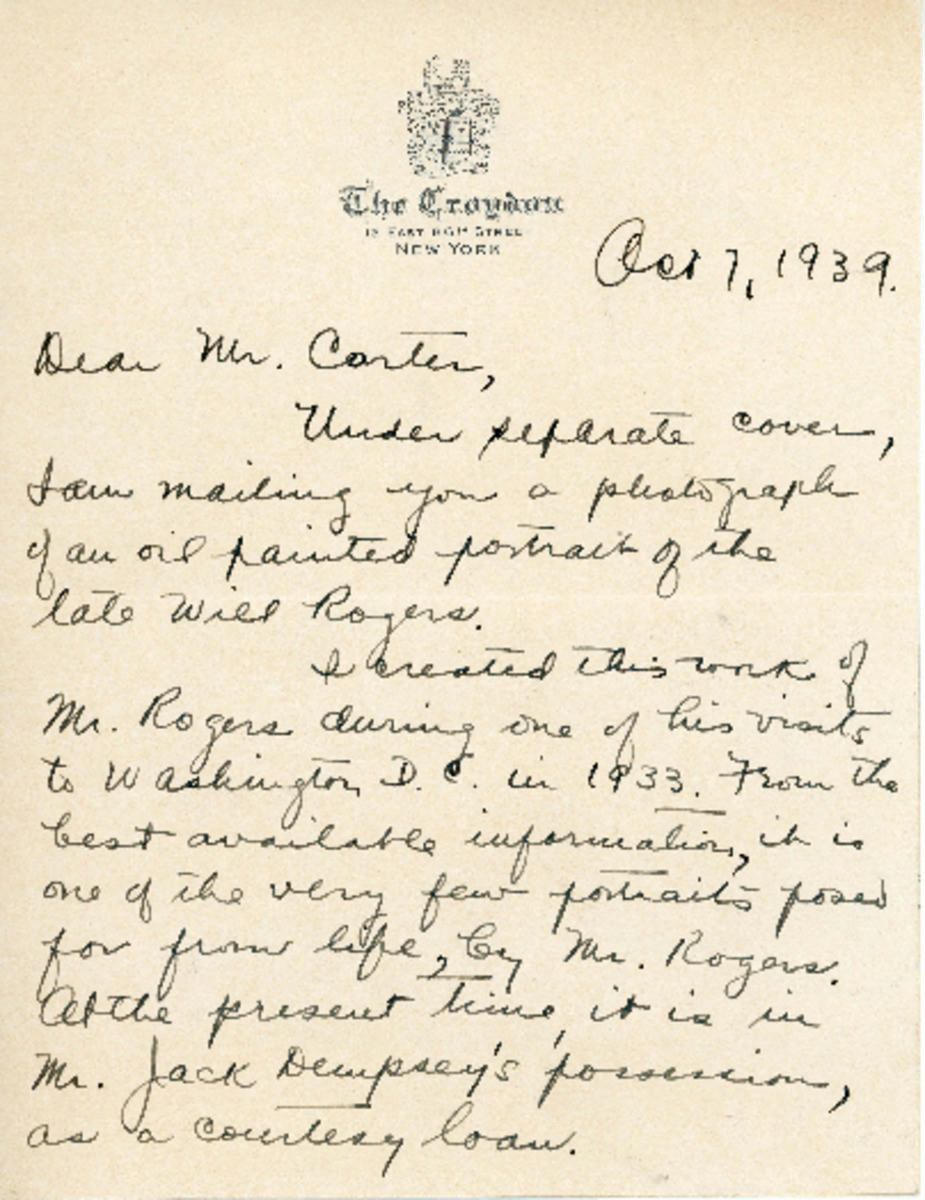 The Croydon
12 EAST 86TH STREET
NEW YORK
Oct 7, 1939.
Dear Mr. Carter,
Under separate cover,
I am mailing you a photograph
of an oil painted portrait of the
late Will Rogers.
I created this work of
Mr. Rogers during one of his visits
to Washington, D.C. in 1933. From the
best available information, it is
one of the very few portraits posed
for from life, by Mr. Rogers.
At the present time, it is in
Mr. Jack Dempsey's possession,
as a courtesy loan.